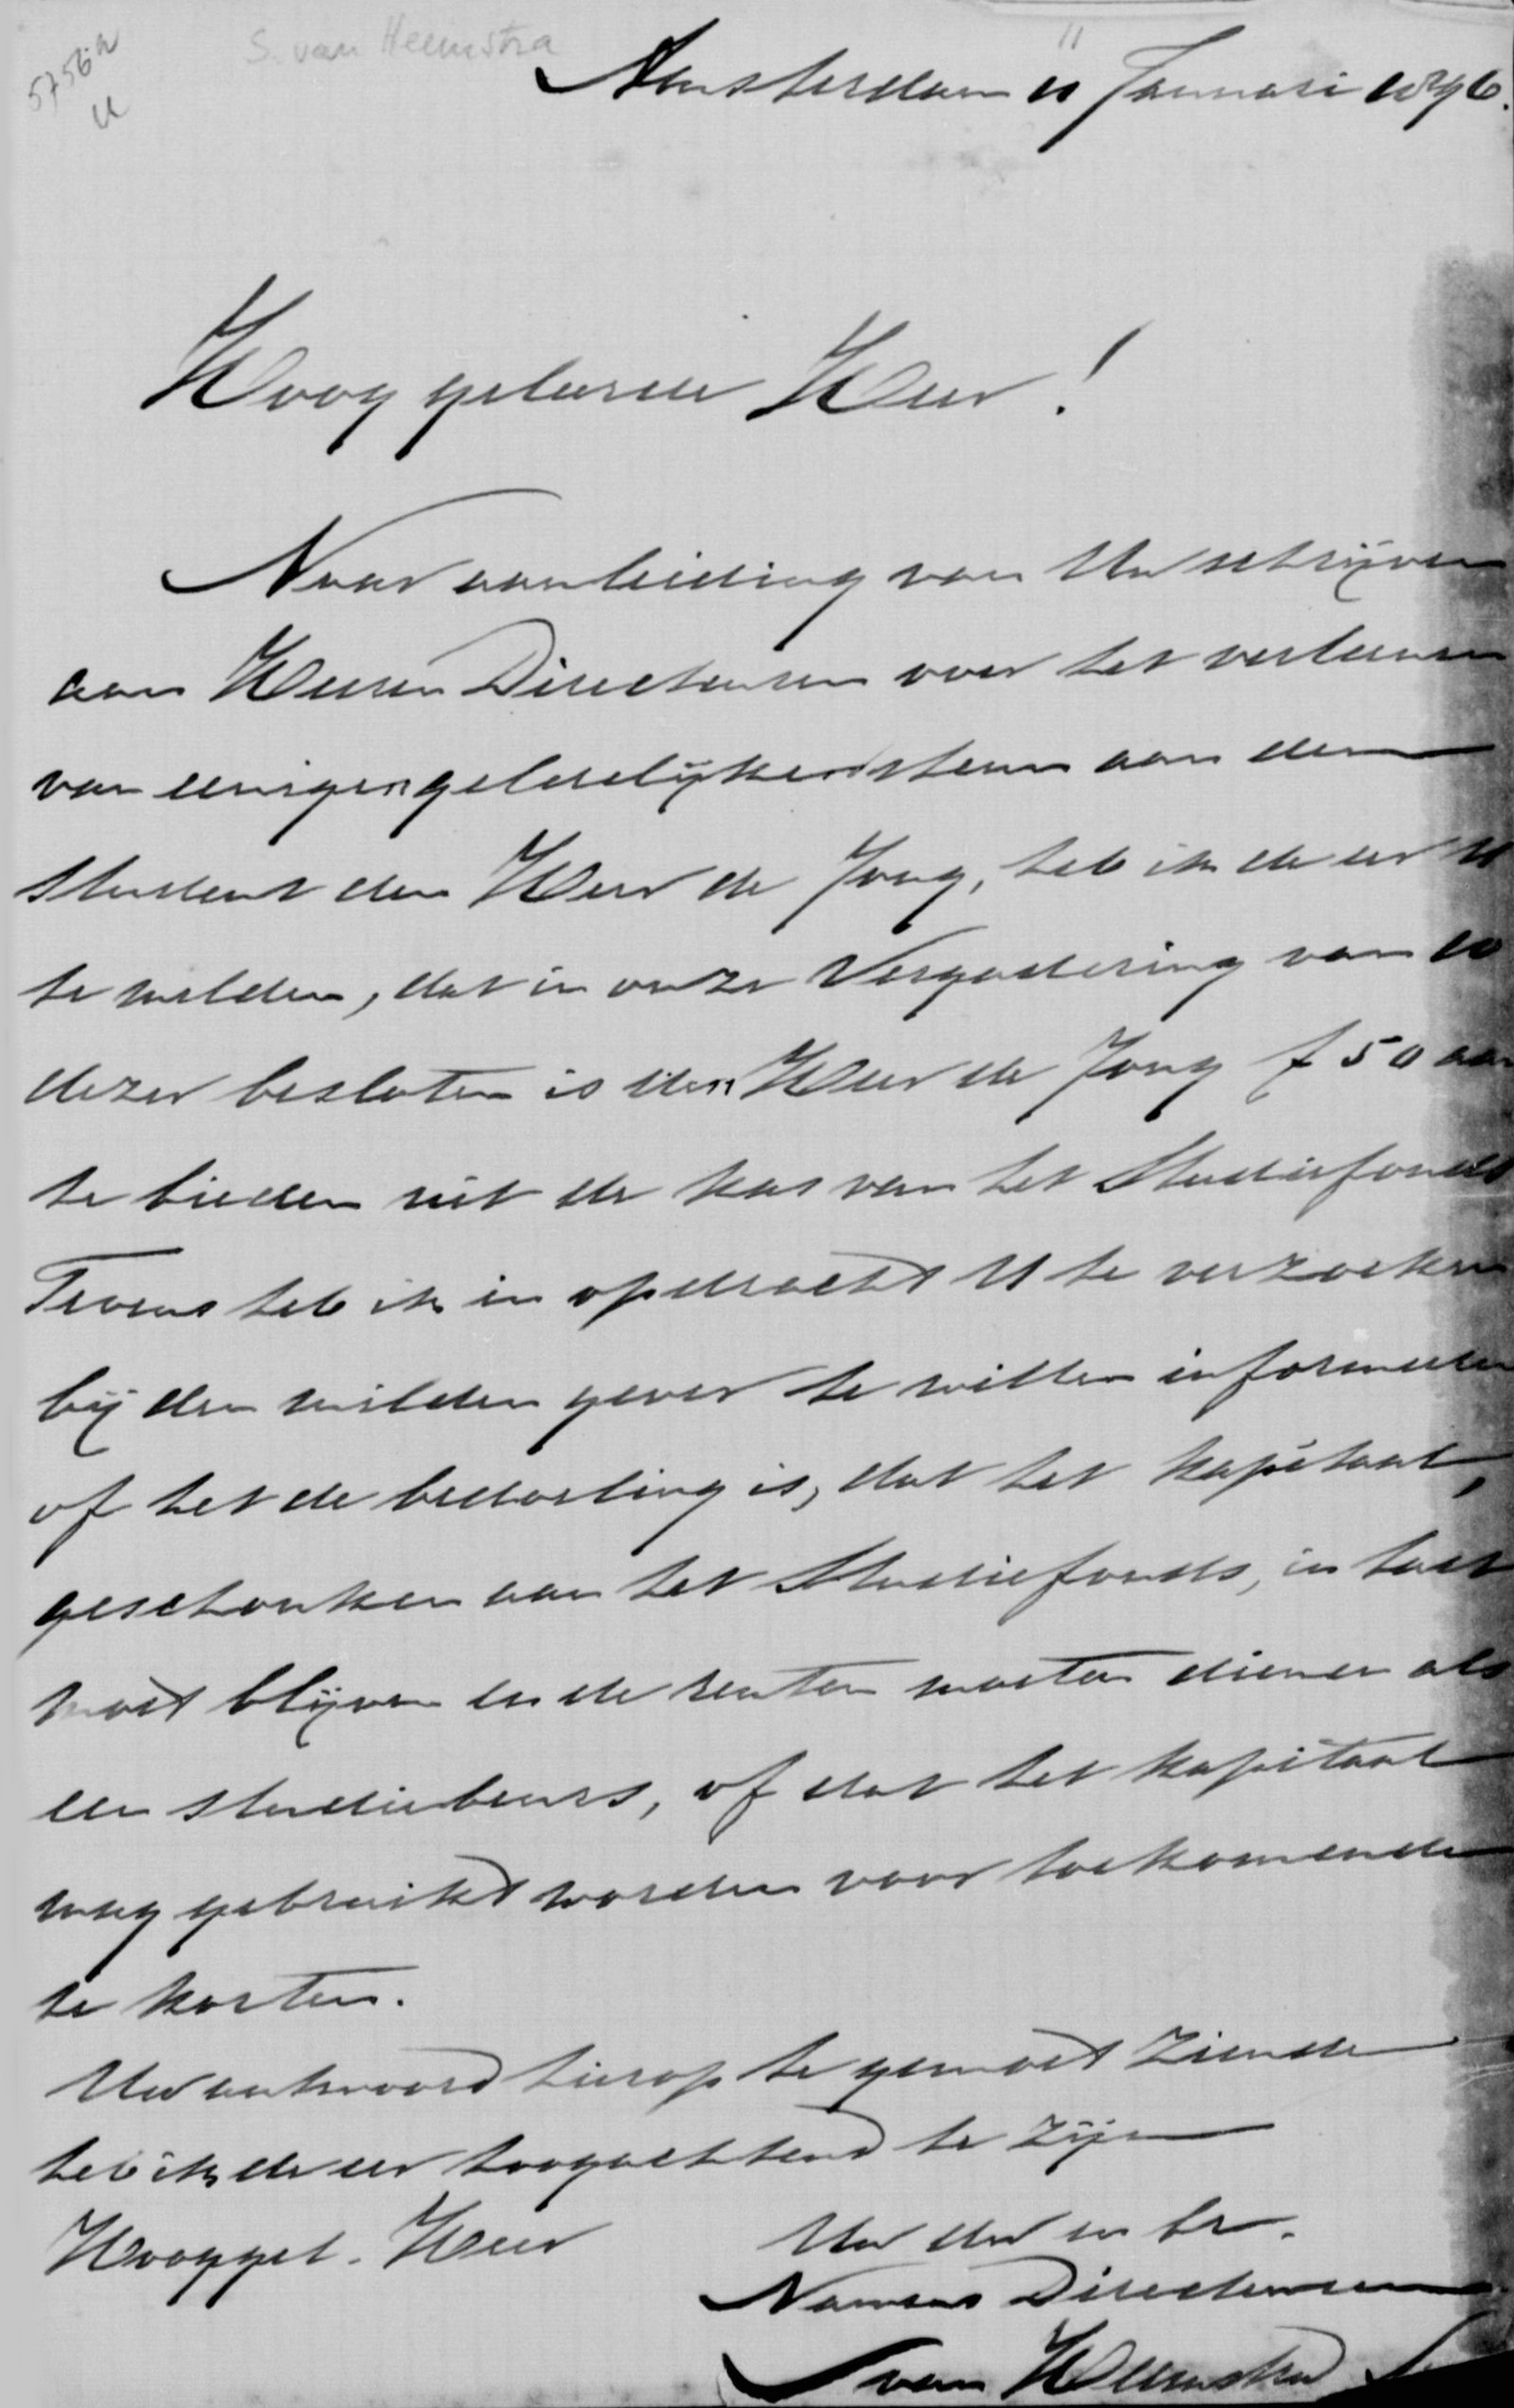 5756a
S. van Heemstra
11
Amsterdam 11 Januari 1896.
Hooggeboren Heer!
Naar aanleiding van Uw schrijven
aan Heeren Directeuren over het verleenen
van eenigen geldelijken steun aan den
student den Heer de Jong, heb ik de eer U
te melden, dat in onze Vergadering van 10
dezer besloten is den Heer de Jong f 50 aan
te bieden uit de kas van het Studiefonds
Tevens heb ik in opdracht U te verzoeken
bij den milden gever te willen informeeren
of het de bedoeling is, dat het kapitaal,
geschonken aan het Studiefonds, in tact
moet blijven en de renten moeten dienen als
een studiebeurs, of dat het kapitaal
mag gebruikt worden voor toekomende
te korten.
Uw antwoord hierop te gemoet ziende
heb ik de eer hoogachtend te zijn
Hooggeb. Heer
Uw dw en br.
Namens Directeuren
S van Heemstra